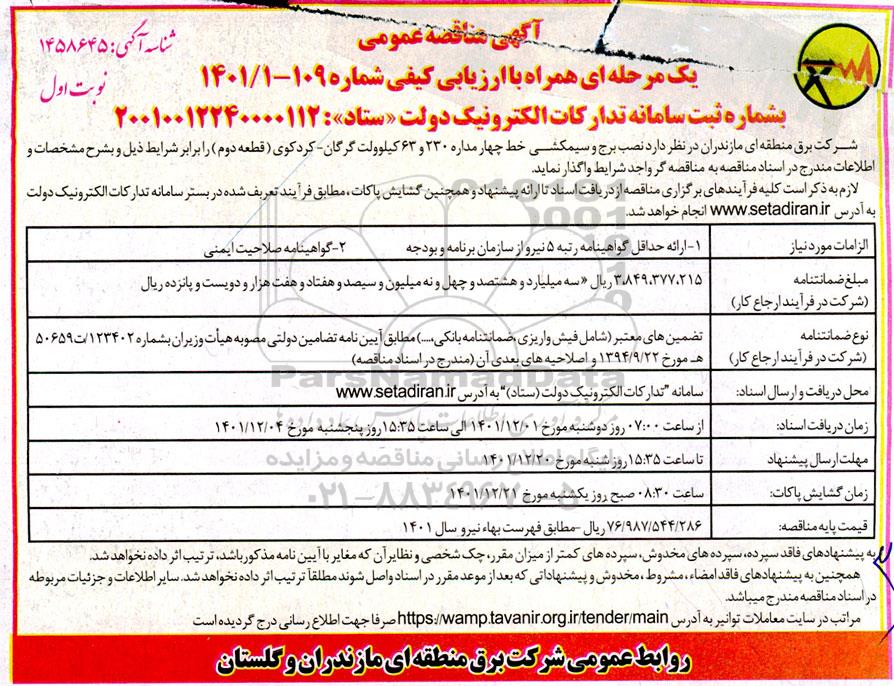 آگهی مناقصه عمومی
شناسه آگهی: ۱۴۵۸۶۴۵
نوبت اول
یک مرحله ای همراه با ارزیابی کیفی شماره ۱۰۹-۱۴۰۱/۱
بشماره ثبت سامانه تدارکات الکترونیک دولت «ستاد»: ۲۰۰۱۰۰۱۲۲۴۰۰۰۰۱۱۲
شرکت برق منطقه ای مازندران در نظر دارد نصب برج و سیمکشی خط چهار مداره ۲۳۰ و ۶۳ کیلوولت گرگان- کردکوی (قطعه دوم) را برابر شرایط ذیل و بشرح مشخصات و
اطلاعات مندرج در اسناد مناقصه به مناقصه گر واجد شرایط واگذار نماید.
لازم به ذکر است کلیه فرآیندهای برگزاری مناقصه از دریافت اسناد تا ارائه پیشنهاد و همچنین گشایش پاکات، مطابق فرآیند تعریف شده در بستر سامانه تدارکات الکترونیک دولت
به آدرس www.setadiran.ir انجام خواهد شد.
الزامات مورد نیاز
۱-ارائه حداقل گواهینامه رتبه ۵ نیرو از سازمان برنامه و بودجه ۲-گواهینامه صلاحیت ایمنی
مبلغ ضمانتنامه
(شرکت در فرآیند ارجاع کار)
۳،۸۴۹،۳۷۷،۲۱۵ ریال «سه میلیارد و هشتصد و چهل و نه میلیون و سیصد و هفتاد و هفت هزار و دویست و پانزده ریال
نوع ضمانتنامه
(شرکت در فرآیند ارجاع کار)
تضمین های معتبر (شامل فیش واریزی، ضمانتنامه بانکی،...) مطابق آیین نامه تضامین دولتی مصوبه هیأت وزیران بشماره ۱۲۳۴۰۲/ت۵۰۶۵۹
هـ مورخ ۱۳۹۴/۹/۲۲ و اصلاحیه های بعدی آن (مندرج در اسناد مناقصه)
محل دریافت و ارسال اسناد:
سامانه "تدارکات الکترونیک دولت (ستاد)" به آدرس www.setadiran.ir
زمان دریافت اسناد:
از ساعت ۰۷:۰۰ روز دوشنبه مورخ ۱۴۰۱/۱۲/۰۱ الی ساعت ۱۵:۳۵ روز پنجشنبه مورخ ۱۴۰۱/۱۲/۰۴
مهلت ارسال پیشنهاد
تا ساعت ۱۵:۳۵ روز شنبه مورخ ۱۴۰۱/۱۲/۲۰
زمان گشایش پاکات:
ساعت ۰۸:۳۰ صبح روز یکشنبه مورخ ۱۴۰۱/۱۲/۲۱
قیمت پایه مناقصه:
۷۶/۹۸۷/۵۴۴/۲۸۶ ریال -مطابق فهرست بهاء نیرو سال ۱۴۰۱
به پیشنهادهای فاقد سپرده، سپرده های مخدوش، سپرده های کمتر از میزان مقرر، چک شخصی و نظایر آن که مغایر با آیین نامه مذکور باشد، ترتیب اثر داده نخواهد شد.
همچنین به پیشنهادهای فاقد امضاء، مشروط، مخدوش و پیشنهاداتی که بعد از موعد مقرر در اسناد واصل شوند مطلقاً ترتیب اثر داده نخواهد شد. سایر اطلاعات و جزئیات مربوطه
در اسناد مناقصه مندرج میباشد.
مراتب در سایت معاملات توانیر به آدرس https://wamp.tavanir.org.ir/tender/main صرفا جهت اطلاع رسانی درج گردیده است
روابط عمومی شرکت برق منطقه ای مازندران و گلستان
ParsNamadData
پایگاه اطلاع رسانی مناقصه و مزایده
۰۲۱-۸۸۳۴۹۶۷۰-۵